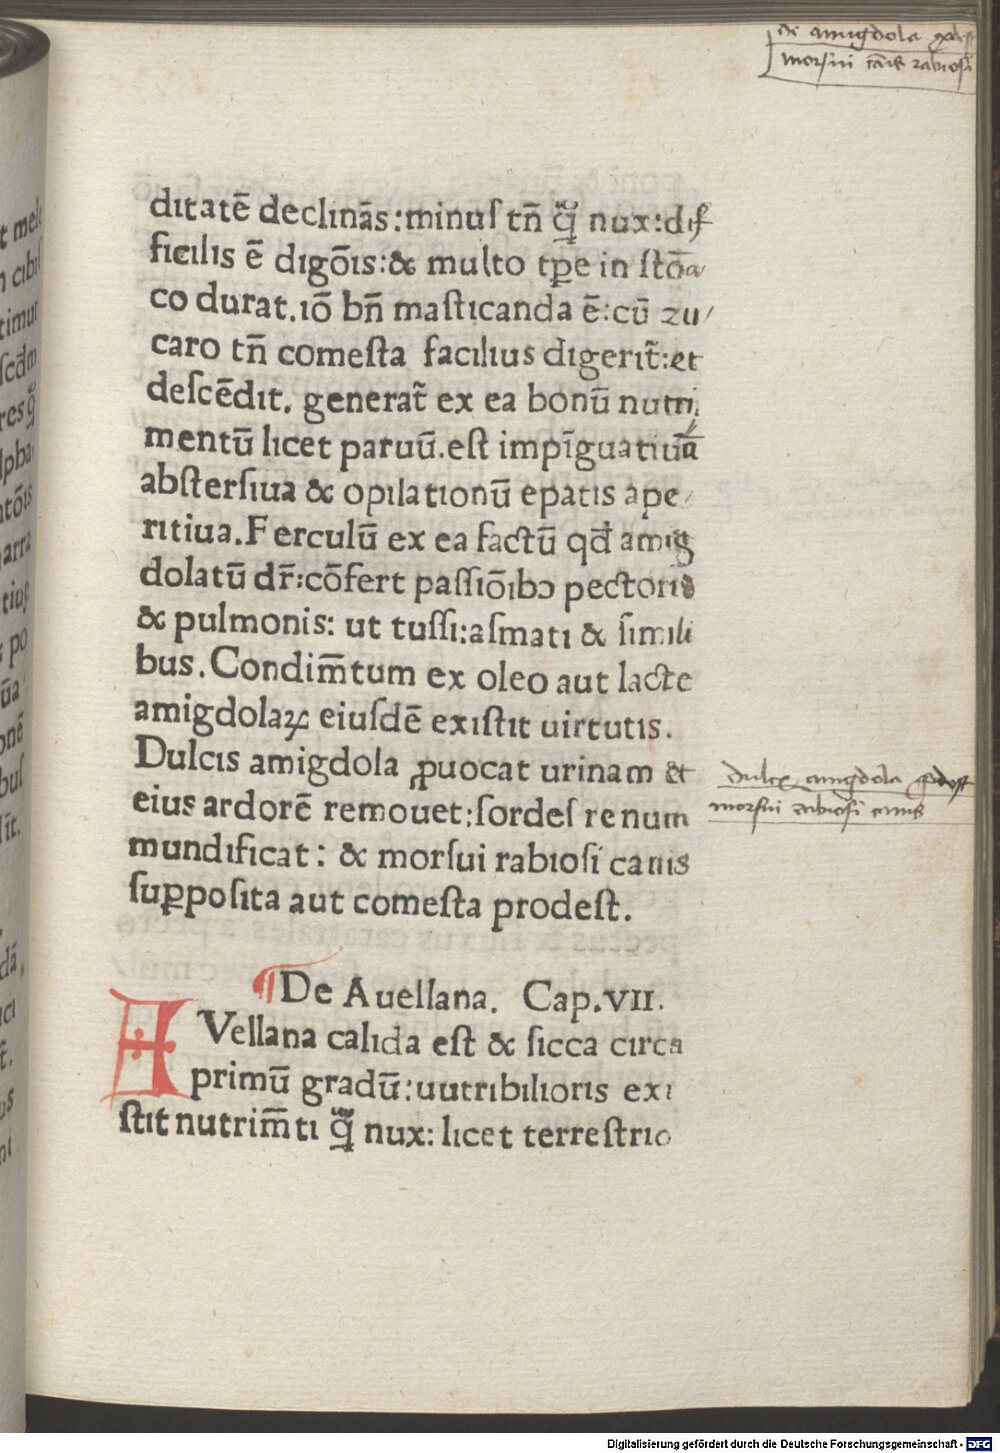 de amigdola prodest
morsui canis rabiosi
ditatē declinās:minuſ tñ q̄ nux:diſ
ficilis ē digōis:& multo tꝑe in ſtōa
co durat.iō bñ maſticanda ē:cū zu/
caro tñ comeſta facilius digerit̃:et
deſcēdit. generat̃ ex ea bonū nutri
mentū licet paruū.eſt impīguatiua
abſterſiua & opilationū epatis ape/
ritiua.Ferculū ex ea factū qđ amig
dolatū dr̄:cōfert paſſiōibꝫ pectoris
& pulmonis: ut tuſſi:aſmati & ſimili
bus.Condim̄tum ex oleo aut lacte
amigdolaꝝ eiuſdē exiſtit uirtutis.
Dulcis amigdola ꝓuocat urinam et
eius ardorē remouet:ſordeſ renum
mundificat: & morſui rabioſi canis
ſuꝑpoſita aut comeſta prodeſt.
dulcis amigdola prodest
morsui rabiosi canis
¶De Auellana. Cap.VII.
AVellana calida eſt & ſicca circa
primū gradū:uutribilioris exi
ſtit nutrim̄ti q̄ nux: licet terreſtrio
t mel
n cibi
timur
Digitalisierung gefördert durch die Deutsche Forschungsgemeinschaft - DFG